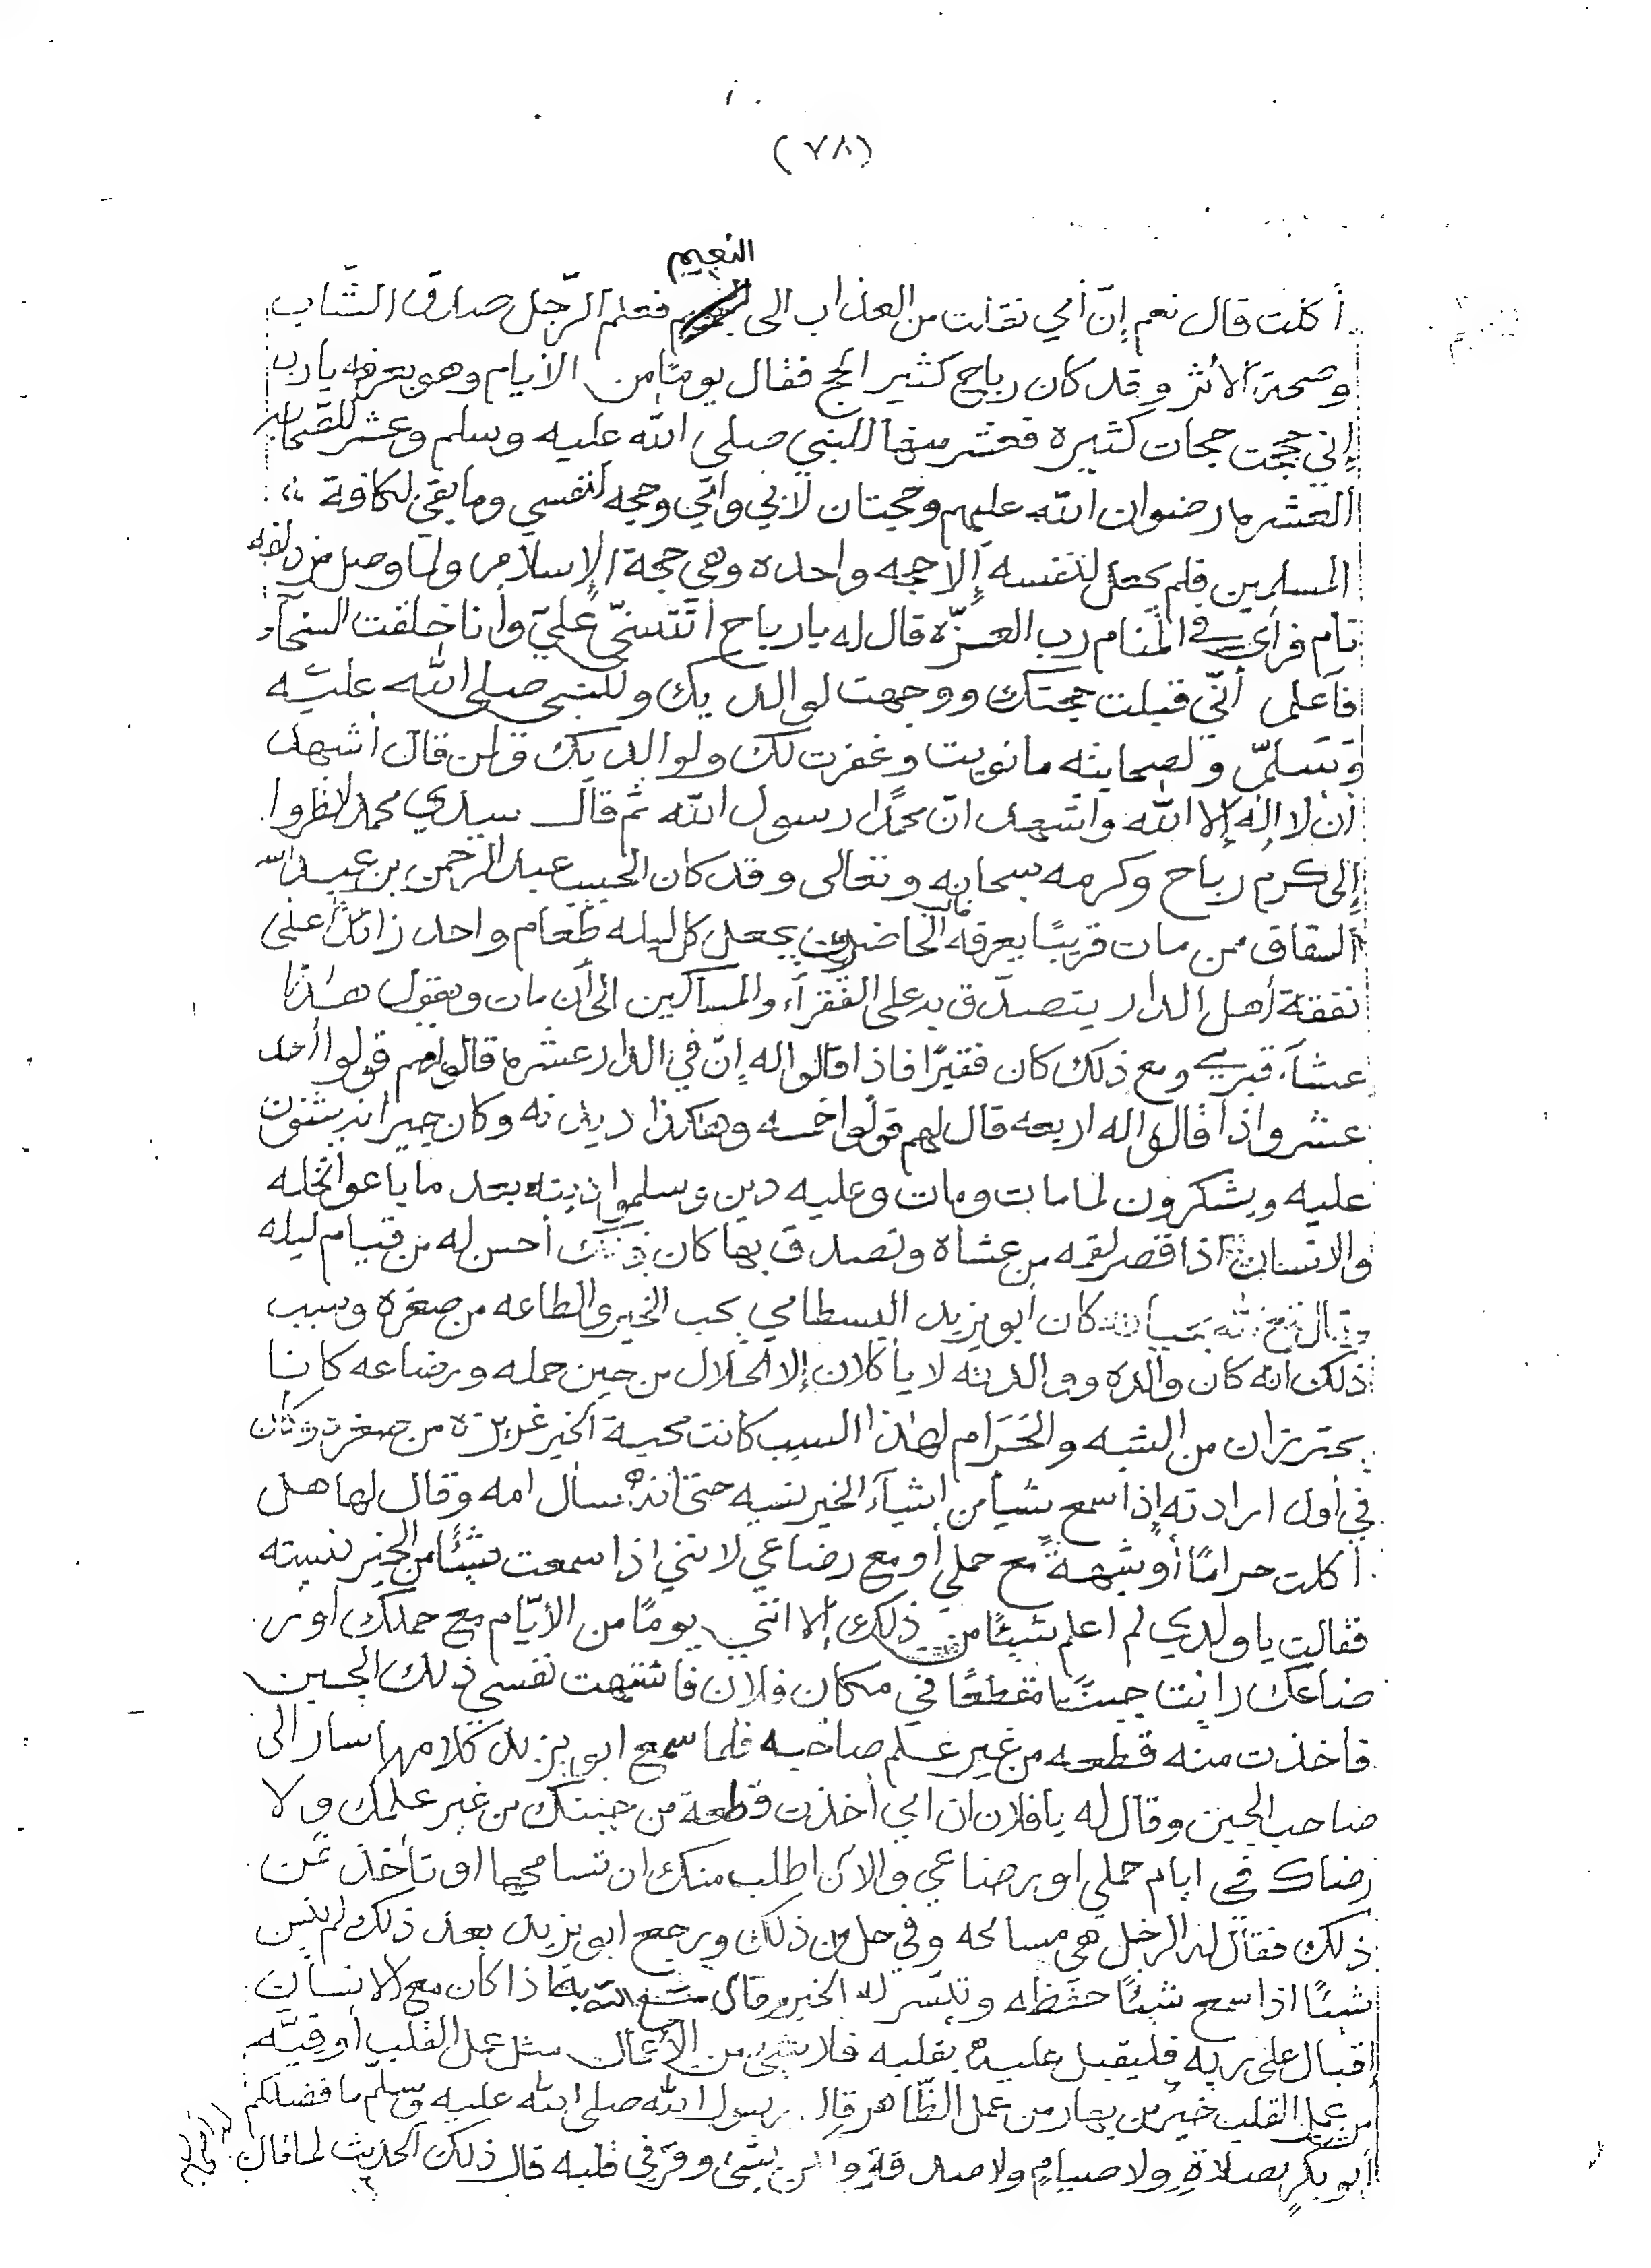 (٧٨)
النعيم
أكلت قال نعم إنّ أمي نقلت من العذاب الى فعلم الرّجل صدق الشّاب
وصحة الأثر وقد كان رباح كثير الحج فقال يومًا من الأيام وهو بعرفه يارب
إني حججت حجات كثيرة فعشر منها للنبي صلى الله عليه وسلم وعشر للصّحابه
العشره رضوان الله عليهم وحجتان لأبي وأمّي وحجه لنفسي وما بقي لكافة
المسلمين فلم يجعل لنفسه إلا حجه واحده وهي حجة الإسلام ولما وصل مزدلفه
نام فرأى في المنام رب العزّه قال له يا رباح أتتسخّى عليّ وأنا خلقت السخآء
فأعلم أنّي قبلت حجتك ووجهت لوالديك وللنبي صلى الله عليه
وسلّم ولصحابته ما نويت وغفرت لك ولوالديك ولمن قال أشهد
أن لا إله إلا الله وأشهد انّ محمدًا رسول الله ثم قال سيدي محمد انظروا
إلى كرم رباح وكرمه سبحانه وتعالى وقد كان الحبيب عبد الرحمن بن عبد الله
السقاف ممن مات قريبًا يعرفه الحاضرون يجعل كل ليله طعام واحد زائدًا على
نفقة أهل الدار يتصدّق به على الفقرآء والمساكين الى أن مات ويقول هذا
عشآء قبري ومع ذلك كان فقيرًا فاذا قالوا له إنّ في الدار عشره قال لهم قولوا أحد
عشر واذا قالوا له اربعه قال لهم قولوا خمسه وهكذا ديدنه وكان جيرانه يثنون
عليه ويشكرون لما مات ومات وعليه دين وسلموا دينه بعد ما باعوا نخله
والانسان اذا قصر لقمه من عشاه وتصدق بها كان ذلك أحسن له من قيام ليله
وقال كان أبو يزيد البسطامي يحب الخير والطاعه من صغره وسبب
ذلك انه كان والده ووالدته لا يأكلان إلا الحلال من حين حمله ورضاعه كانا
يحترزان من الشبه والحَرَام لهذا السبب كانت محبة الخير غريزة من صغره وكان
في أول ارادته إذا سمع شيأ من اشيآء الخير نسيه حتى انه سأل امه وقال لها هل
أكلت حرامًا أو شبهةً مع حملي أو مع رضاعي لانني اذا سمعت شيئًا من الخير نسيته
فقالت يا ولدي لم اعلم شيئًا من ذلك إلا انني يومًا من الأيّام مع حملك اور
ضاعك رايت جبنًا مقطعًا في مكان فلان فاشتهت نفسي ذلك الجبن
فاخذت منه قطعه من غير علم صاحبه فلما سمع ابو يزيد كلامها سار الى
صاحب الجبن وقال له يا فلان ان امي أخذت قطعة من جبنك من غير علمك ولا
رضاك في ايام حملي او رضاعي والآن اطلب منك ان تسامحها او تأخذ ثمن
ذلك فقال له الرجل هي مسامحه وفي حل من ذلك ورجع ابو يزيد بعد ذلك لم ينس
شيئًا اذا سمع شيئًا حفظه وتيسّر له الخير وقال اذا كان مع الانسان
إقبال على ربه فليقبل عليه بقلبه فلا شيئ من الأعمال مثل عمل القلب أوقيّه
من عمل القلب خيرٌ من بهار من عمل الظّاهر قال رسول الله صلى الله عليه وسلّم ما فضلكم
أبو بكرٍ بصلاةٍ ولا صيامٍ ولا صدقةٍ و بشئ وقر في قلبه قال ذلك الحديث لما قال